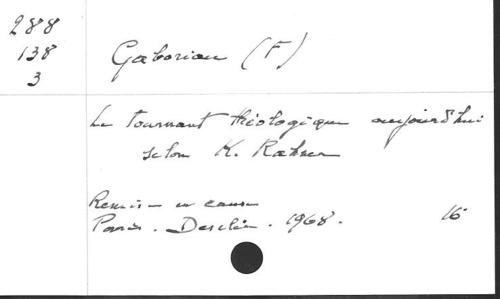 288
138
3
Gaboriau (F)
Le tournant théologique aujourd'hui
selon K. Rahner
Remise en cause
Paris. Desclée. 1968. 16